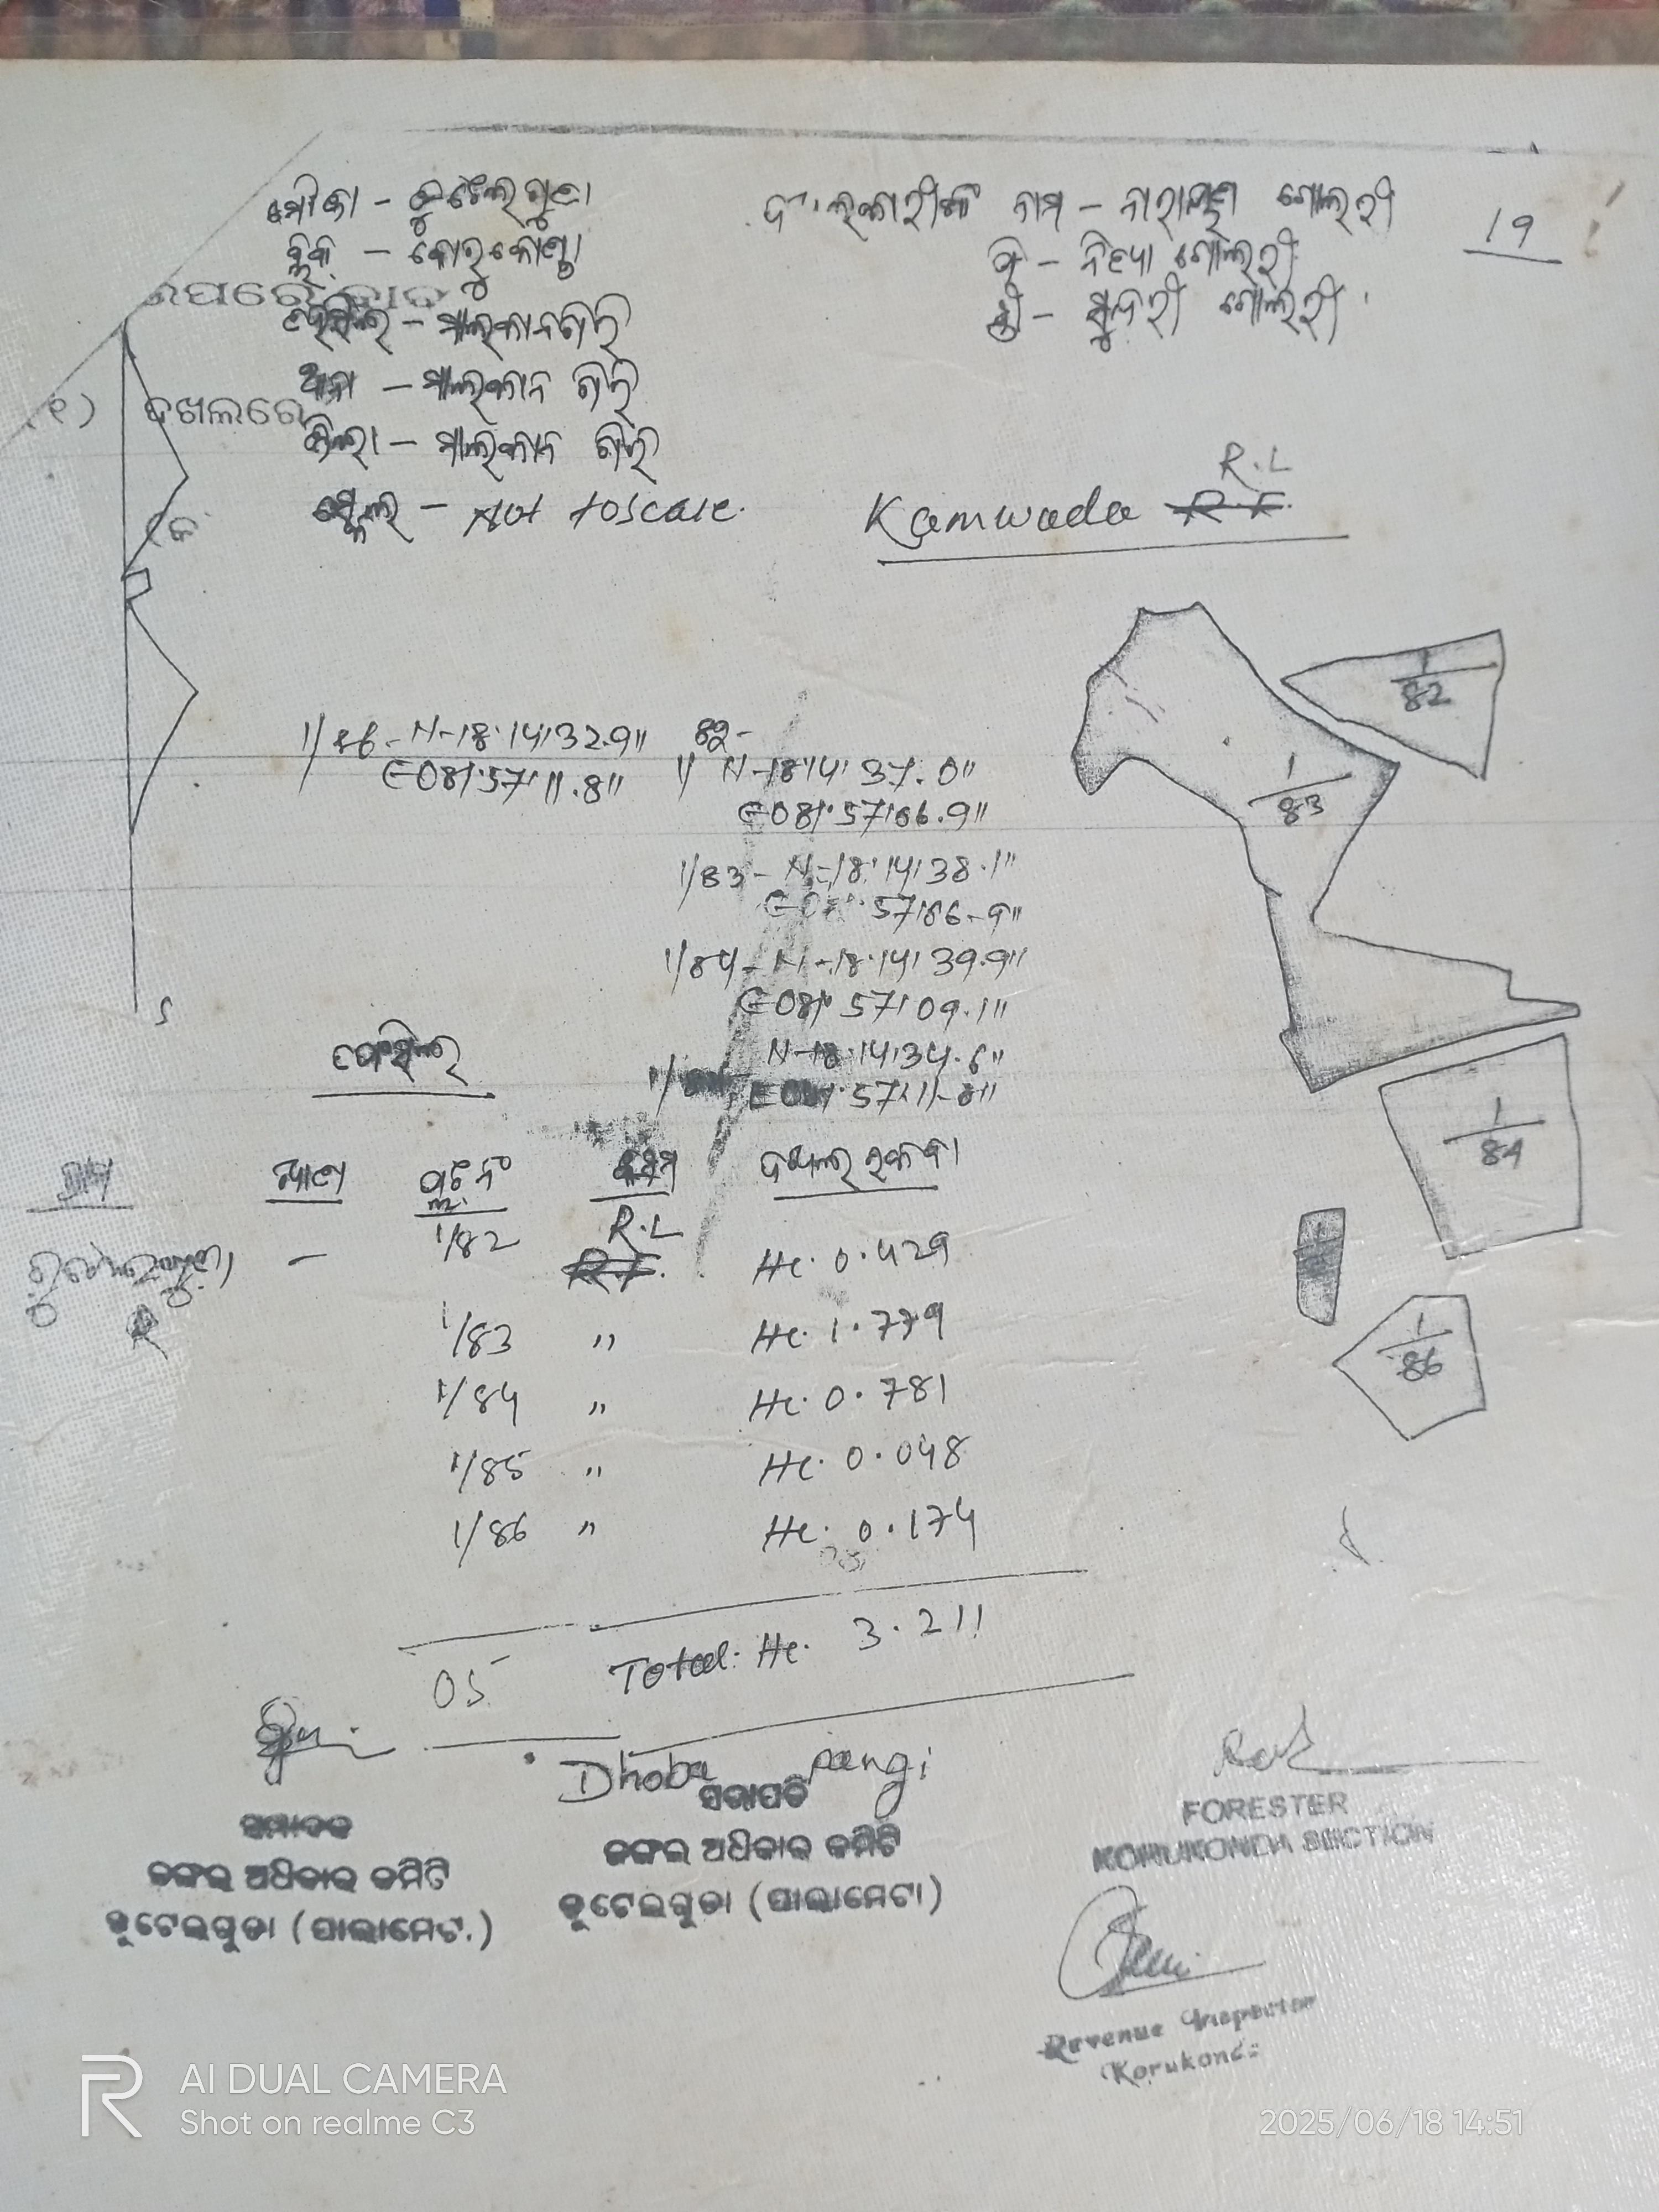 ମୌଜା - କୁଟେଲଗୁଡା
ବ୍ଲକ - କୋରୁକୋଣ୍ଡା
ତହସିଲ - ମାଲକାନଗିରି
ଥାନା - ମାଲକାନ ଗିରି
ଜିଲ୍ଲା - ମାଲକାନ ଗିରି
ସ୍କେଲ - Not toscale.
ନାମ - ନାରାୟଣ ଗୋଲରୀ
ପି - ନିତ୍ୟା ଗୋଲରୀ
ସ୍ତ୍ରୀ - ସୁନ୍ଦରୀ ଗୋଲରୀ
19
(୧) ଦଖଲରେ
(କ
R.L
Kamwada R.F.
1/86 - N-18°14'32.9"
E081°57'11.8"
82-
1/ N-18°14'37.0"
E081°57'06.9"
1/83 - N-18°14'38.1"
E081°57'06.9"
1/84 - N-18°14'39.9"
E081°57'09.1"
N-18°14'34.6"
E081°57'11.8"
1/82
1/83
1/84
1/86
S
ତଫସିଲ
ଗ୍ରାମ ଖାତା ପ୍ଲଟ ନଂ କିସମ ଦଖଲ ରକବା
କୁଟେଲଗୁଡା - 1/82 R.L R.F. He. 0.429
1/83 " He. 1.779
1/84 " He. 0.781
1/85 " He. 0.048
1/86 " He. 0.174
05 Total: He. 3.211
Dhoba pangi
ସମ୍ପାଦକ
ଜଙ୍ଗଲ ଅଧିକାର କମିଟି
କୁଟେଲଗୁଡା (ପାଲାମେଟ.)
ସଭାପତି
ଜଙ୍ଗଲ ଅଧିକାର କମିଟି
କୁଟେଲଗୁଡା (ପାଲାମେଟା)
FORESTER
KORUKONDA SECTION
Revenue Inspector
Korukonda
AI DUAL CAMERA
Shot on realme C3
2025/06/18 14:51